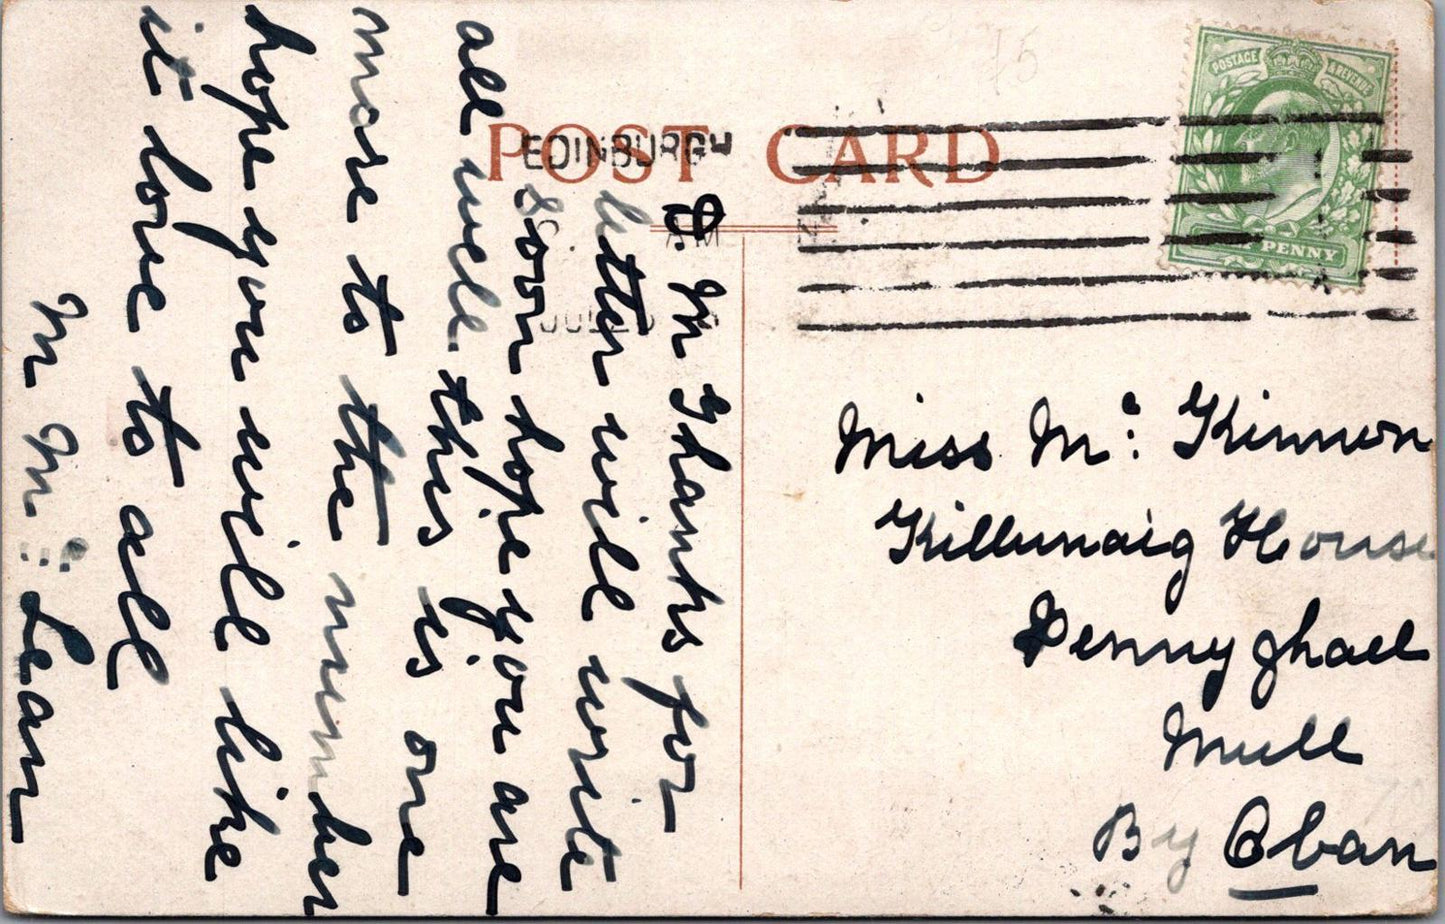 POST CARD
EDINBURGH
AM
JUL
POSTAGE & REVENUE
PENNY
75
D. M Thanks for
letter will write
soon hope you are
all well this is one
more to the number
hope you will like
it love to all
M Mc Lean
Miss Mc Kinnon
Killunaig House
Pennyghael
Mull
By Oban